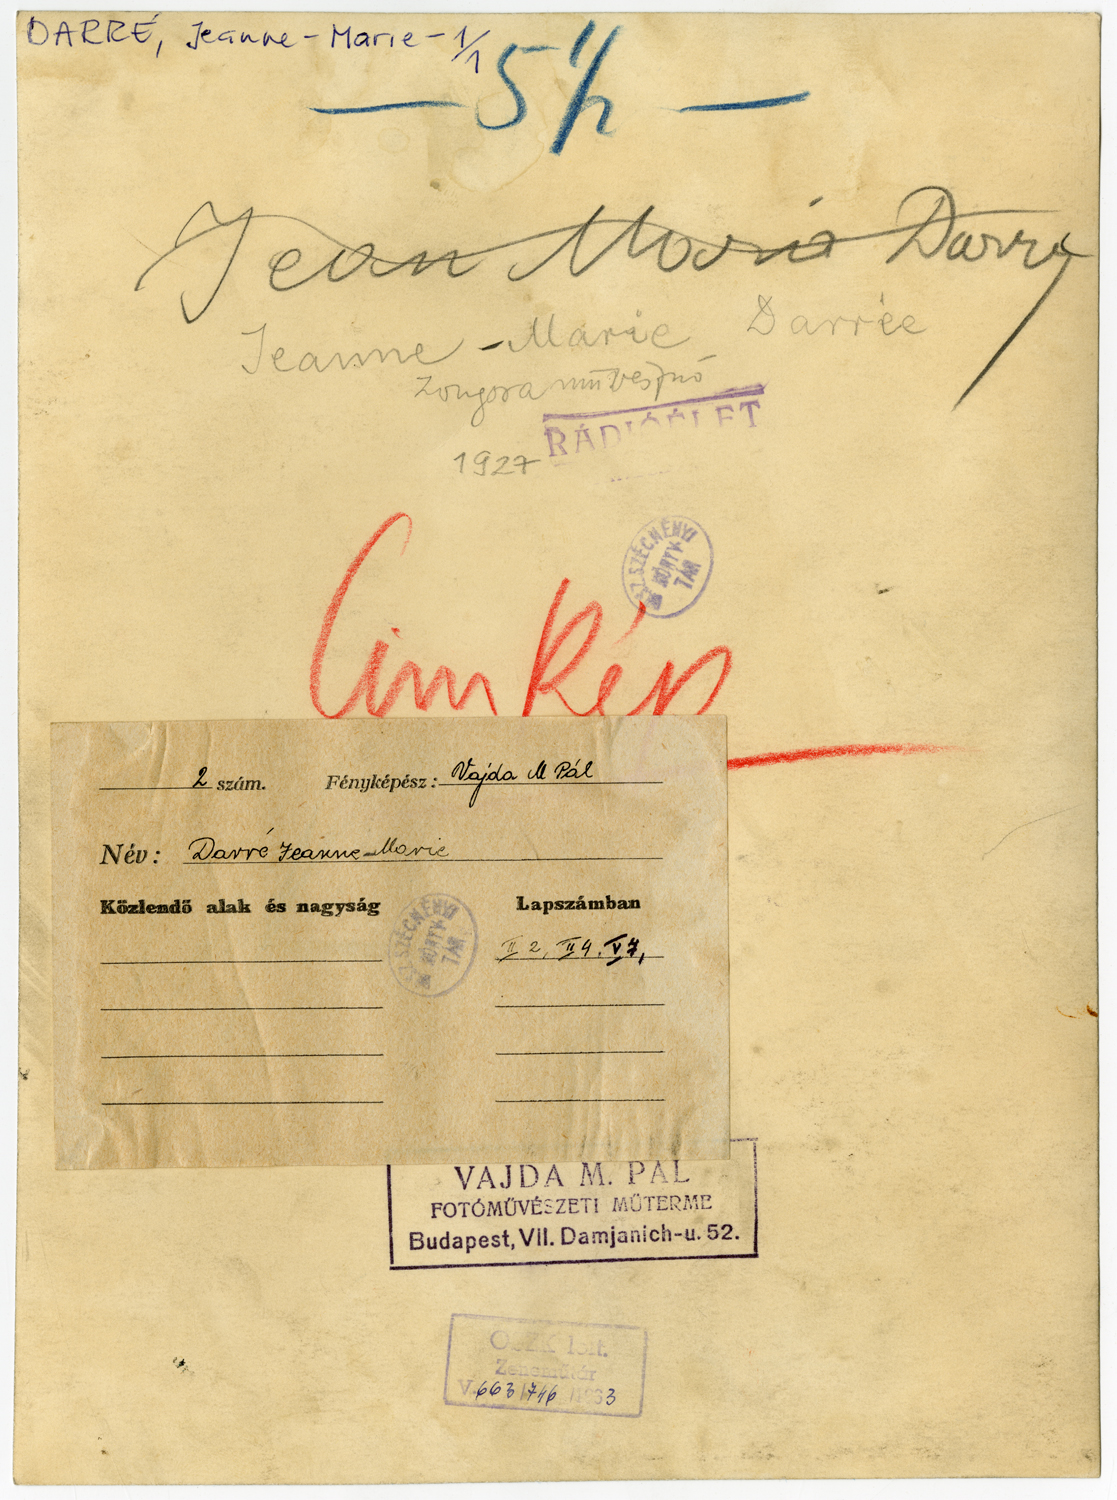 DARRÉ, Jeanne-Marie-1/1
— 5 1/2 —
Jean Mario Darry
Jeanne-Marie Darrée
Zongoraművésznő
RÁDIÓÉLET
1927
SZÉCHÉNYI
KÖNYV-
TÁR
Cimkép
2 szám. Fényképész: Vajda M Pál
Név: Darré Jeanne-Marie
Közlendő alak és nagyság Lapszámban
II 2, III 4, V 7,
SZÉCHÉNYI
KÖNYV-
TÁR
VAJDA M. PÁL
FOTÓMŰVÉSZETI MŰTERME
Budapest, VII. Damjanich-u. 52.
Zeneműtár
V. 663/746